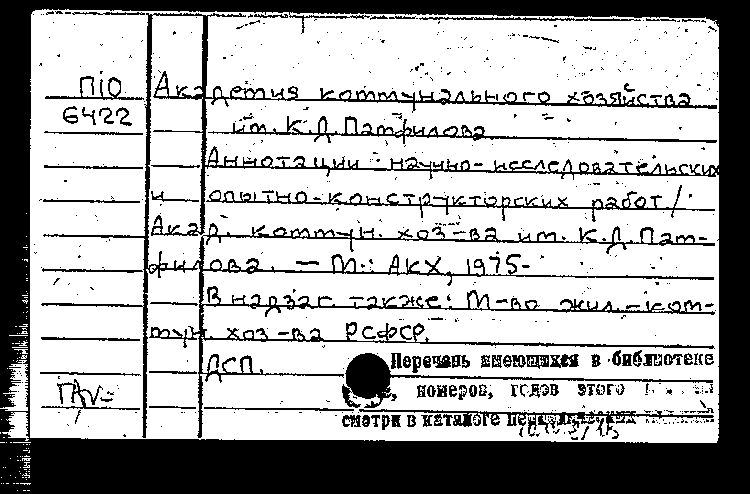 П10 Академия коммунального хозяйства
6422 им. К.Д. Памфилова
Аннотации научно-исследовательских
и опытно-конструкторских работ /
Акад. коммун. хоз-ва им. К.Д. Пам-
филова. — М.: АКХ, 1975-
В надзаг. также: М-во жил.-ком-
мун. хоз-ва РСФСР.
ДСП.
Перечень имеющихся в библиотеке
, номеров, годов этого
смотри в каталоге